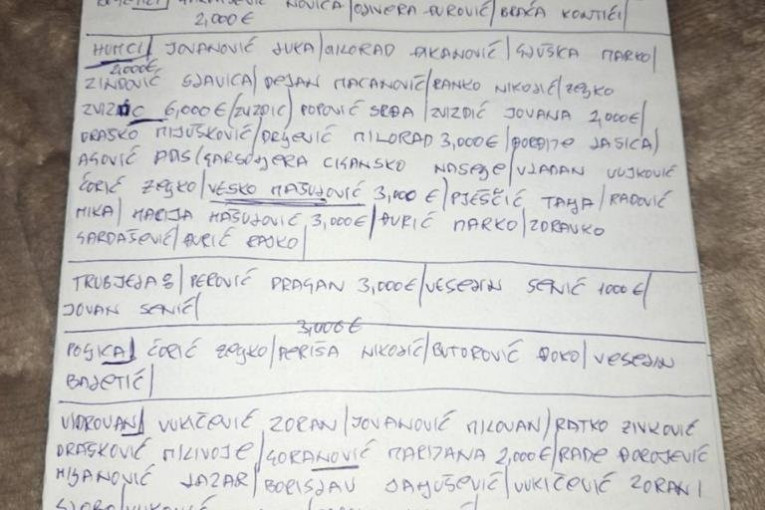 NOVICA/OJNERA ĐUROVIĆ/BRAĆA KONTIĆ/
2,000€
HUMCI/ JOVANOVIĆ LUKA/MILORAD ĐIKANOVIĆ/GLUŠKA MARKO/
2,000€
ZINDOVIĆ SLAVICA/DEJAN MACANOVIĆ/RANKO NIKOLIĆ/ZELJKO
ZVIZDIĆ 6,000€/ZVIZDIĆ/POPOVIĆ SRĐA/ZVIZDIĆ JOVANA 2,000€/
DRAŠKO MIJUŠKOVIĆ/DRLJEVIĆ MILORAD 3,000€/ĐORĐIJE LAŠICA/
AGOVIĆ CIGANSKO NASELJE/VLADAN VUJKOVIĆ
ĆORIĆ ZELJKO/VESKO MAŠULOVIĆ 3,000€/PJEŠČIĆ TANJA/RADOVIĆ
MIKA/MARIJA MAŠULOVIĆ 3,000€/ĐURIĆ MARKO/ZORANKO
GARDAŠEVIĆ/ĐURIĆ RAJKO/
TRUBJELA 8/PEROVIĆ DRAGAN 3,000€/VESELIN SENIĆ 1000€/
JOVAN SENIĆ/
3,000€
POLJKA/ ĆORIĆ ZELJKO/PERIŠA NIKOLIĆ/BUTOROVIĆ ĐOKO/VESELIN
BALETIĆ/
VIDROVAN/ VUKIĆEVIĆ ZORAN/JOVANOVIĆ MILOVAN/RATKO ZIVKOVIĆ
DRAŠKOVIĆ MILIVOJE/GORANOVIĆ MARIJANA 2,000€/RADE ĐOROJEVIĆ
MIJANOVIĆ LAZAR/BORISLAV JANJUŠEVIĆ/VUKIĆEVIĆ ZORAN/